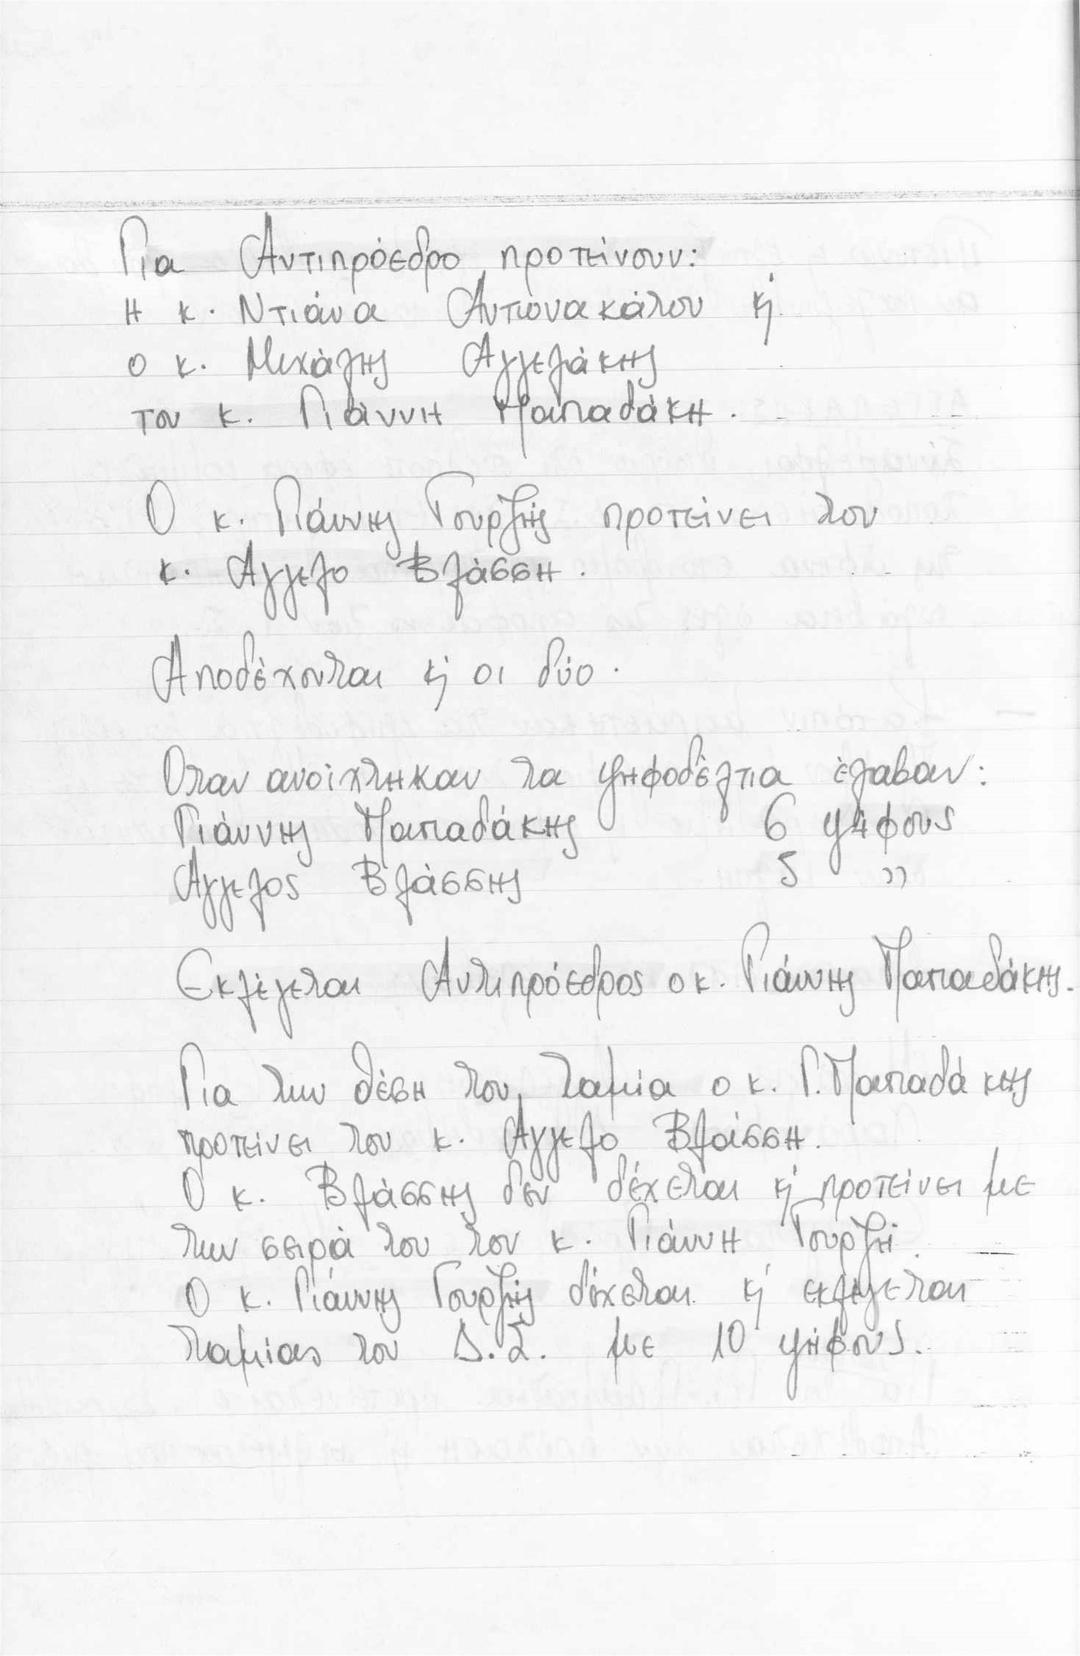 Για Αντιπρόεδρο προτείνουν:
Η κ. Ντιάνα Αντωνακάκου κ'
ο κ. Μιχάλης Αγγελάκης
τον κ. Γιάννη Παπαδάκη.
Ο κ. Γιάννης Γουρζής προτείνει τον
κ. Αγγελο Βλάσση.
Αποδέχονται κ' οι δύο.
Οταν ανοίχτηκαν τα ψηφοδέλτια έλαβαν:
Γιάννης Παπαδάκης 6 ψήφους
Αγγελος Βλάσσης 5 〃
Εκλέγεται Αντιπρόεδρος ο κ. Γιάννης Παπαδάκης.
Για την θέση του Ταμία ο κ. Γ. Παπαδάκης
προτείνει τον κ. Αγγελο Βλάσση.
Ο κ. Βλάσσης δεν δέχεται κ' προτείνει με
την σειρά του τον κ. Γιάννη Γουρζή.
Ο κ. Γιάννης Γουρζής δέχεται κ' εκλέγεται
ταμίας του Δ.Σ. με 10 ψήφους.